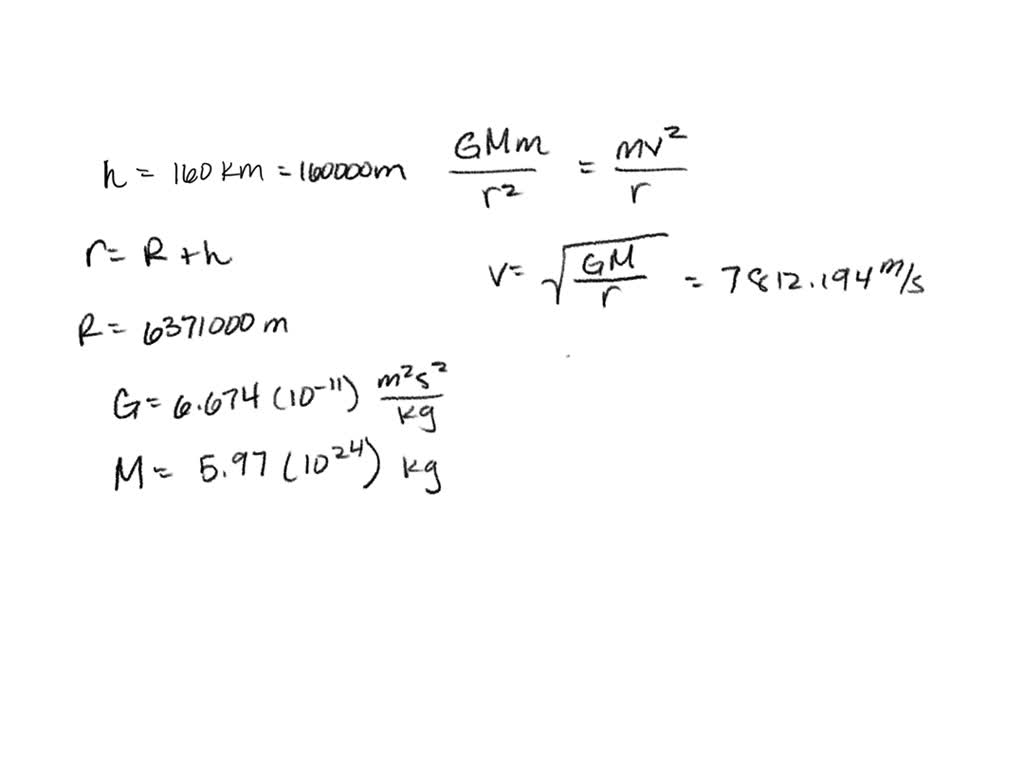 h = 160 km = 160000m
GMm/r² = mv²/r
r = R + h
v = √(GM/r) = 7812.194 m/s
R = 6371000 m
G = 6.674 (10⁻¹¹) m²s²/kg
M = 5.97 (10²⁴) kg